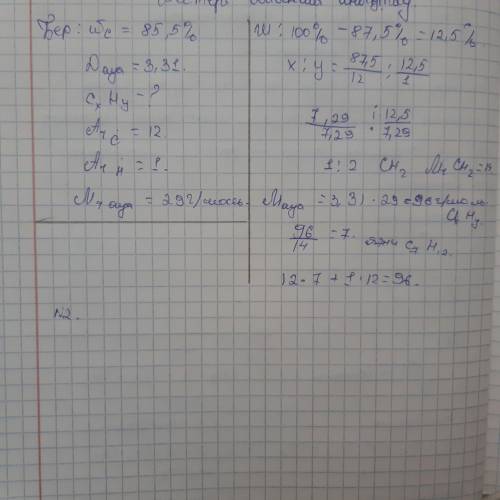 Бер: ω_C = 85,5%
D ауа = 3,31.
CxHy - ?
Ar C = 12.
Ar H = 1.
Mr ауа = 29 г/моль.
№2.
W: 100% - 87,5% = 12,5%
x : y = 87,5/12 : 12,5/1
7,29/7,29 : 12,5/7,29
1 : 2 CH2 Mr CH2 =
M ауа = 3,31 · 29 = 96 г/моль
96/14 = 7. C7H12
12 · 7 + 1 · 12 = 96.